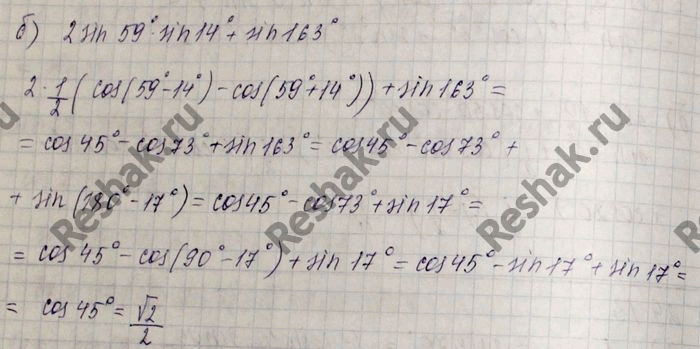 б) 2 sin 59° · sin 14° + sin 163°
2 · 1/2 (cos(59° - 14°) - cos(59° + 14°)) + sin 163° =
= cos 45° - cos 73° + sin 163° = cos 45° - cos 73° +
+ sin (180° - 17°) = cos 45° - cos 73° + sin 17° =
= cos 45° - cos(90° - 17°) + sin 17° = cos 45° - sin 17° + sin 17° =
= cos 45° = √2/2
Reshak.ru
Reshak.ru
Reshak.ru